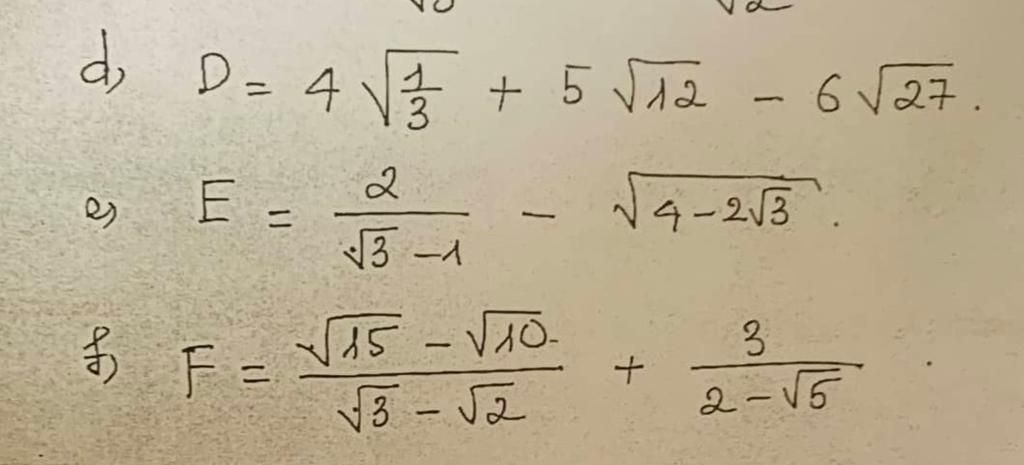 d) D = 4 √(1/3) + 5 √12 - 6 √27.
e) E = 2/(√3 - 1) - √(4 - 2√3).
f) F = (√15 - √10)/(√3 - √2) + 3/(2 - √5).